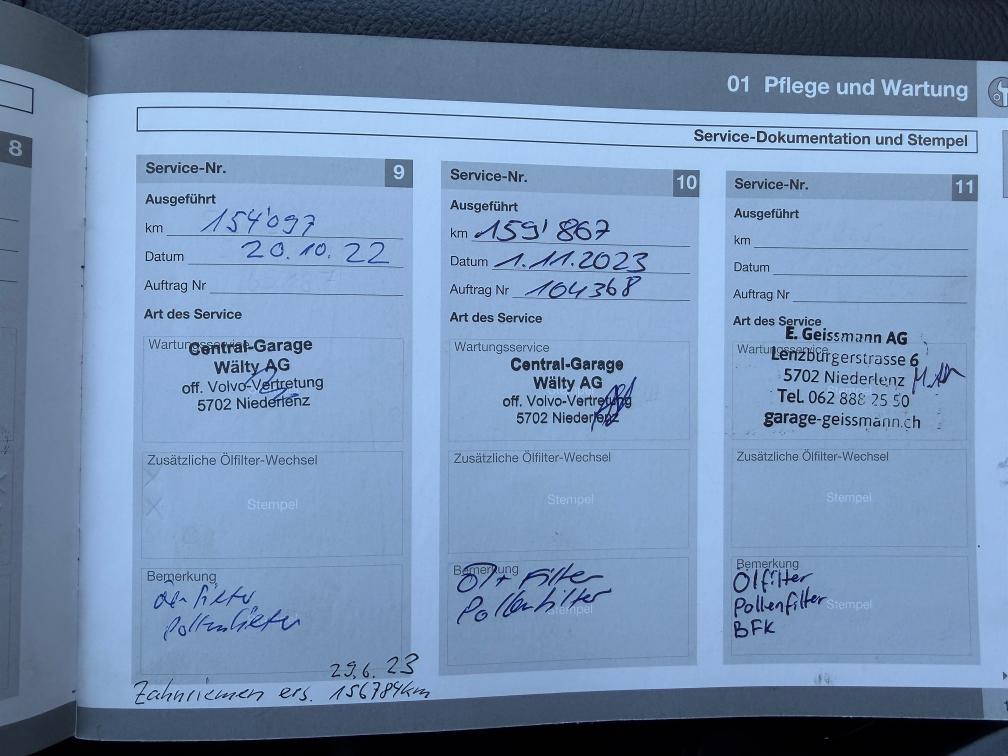 01 Pflege und Wartung
Service-Dokumentation und Stempel
8
Service-Nr. 9
Ausgeführt
km 154'097
Datum 20.10.22
Auftrag Nr
Art des Service
Wartungsservice
Central-Garage
Wälty AG
off. Volvo-Vertretung
5702 Niederlenz
Zusätzliche Ölfilter-Wechsel
Stempel
Bemerkung
Pollenfilter
29.6.23
Zahnriemen ers. 156784km
Service-Nr. 10
Ausgeführt
km 159'867
Datum 1.11.2023
Auftrag Nr 104368
Art des Service
Wartungsservice
Central-Garage
Wälty AG
off. Volvo-Vertretung
5702 Niederlenz
Zusätzliche Ölfilter-Wechsel
Stempel
Bemerkung
Öl + Filter
Pollenfilter
Stempel
Service-Nr. 11
Ausgeführt
km
Datum
Auftrag Nr
Art des Service
Wartungsservice
E. Geissmann AG
Lenzburgerstrasse 6
5702 Niederlenz
Tel. 062 888 25 50
garage-geissmann.ch
Zusätzliche Ölfilter-Wechsel
Stempel
Bemerkung
Ölfilter
Pollenfilter
Stempel
BFK